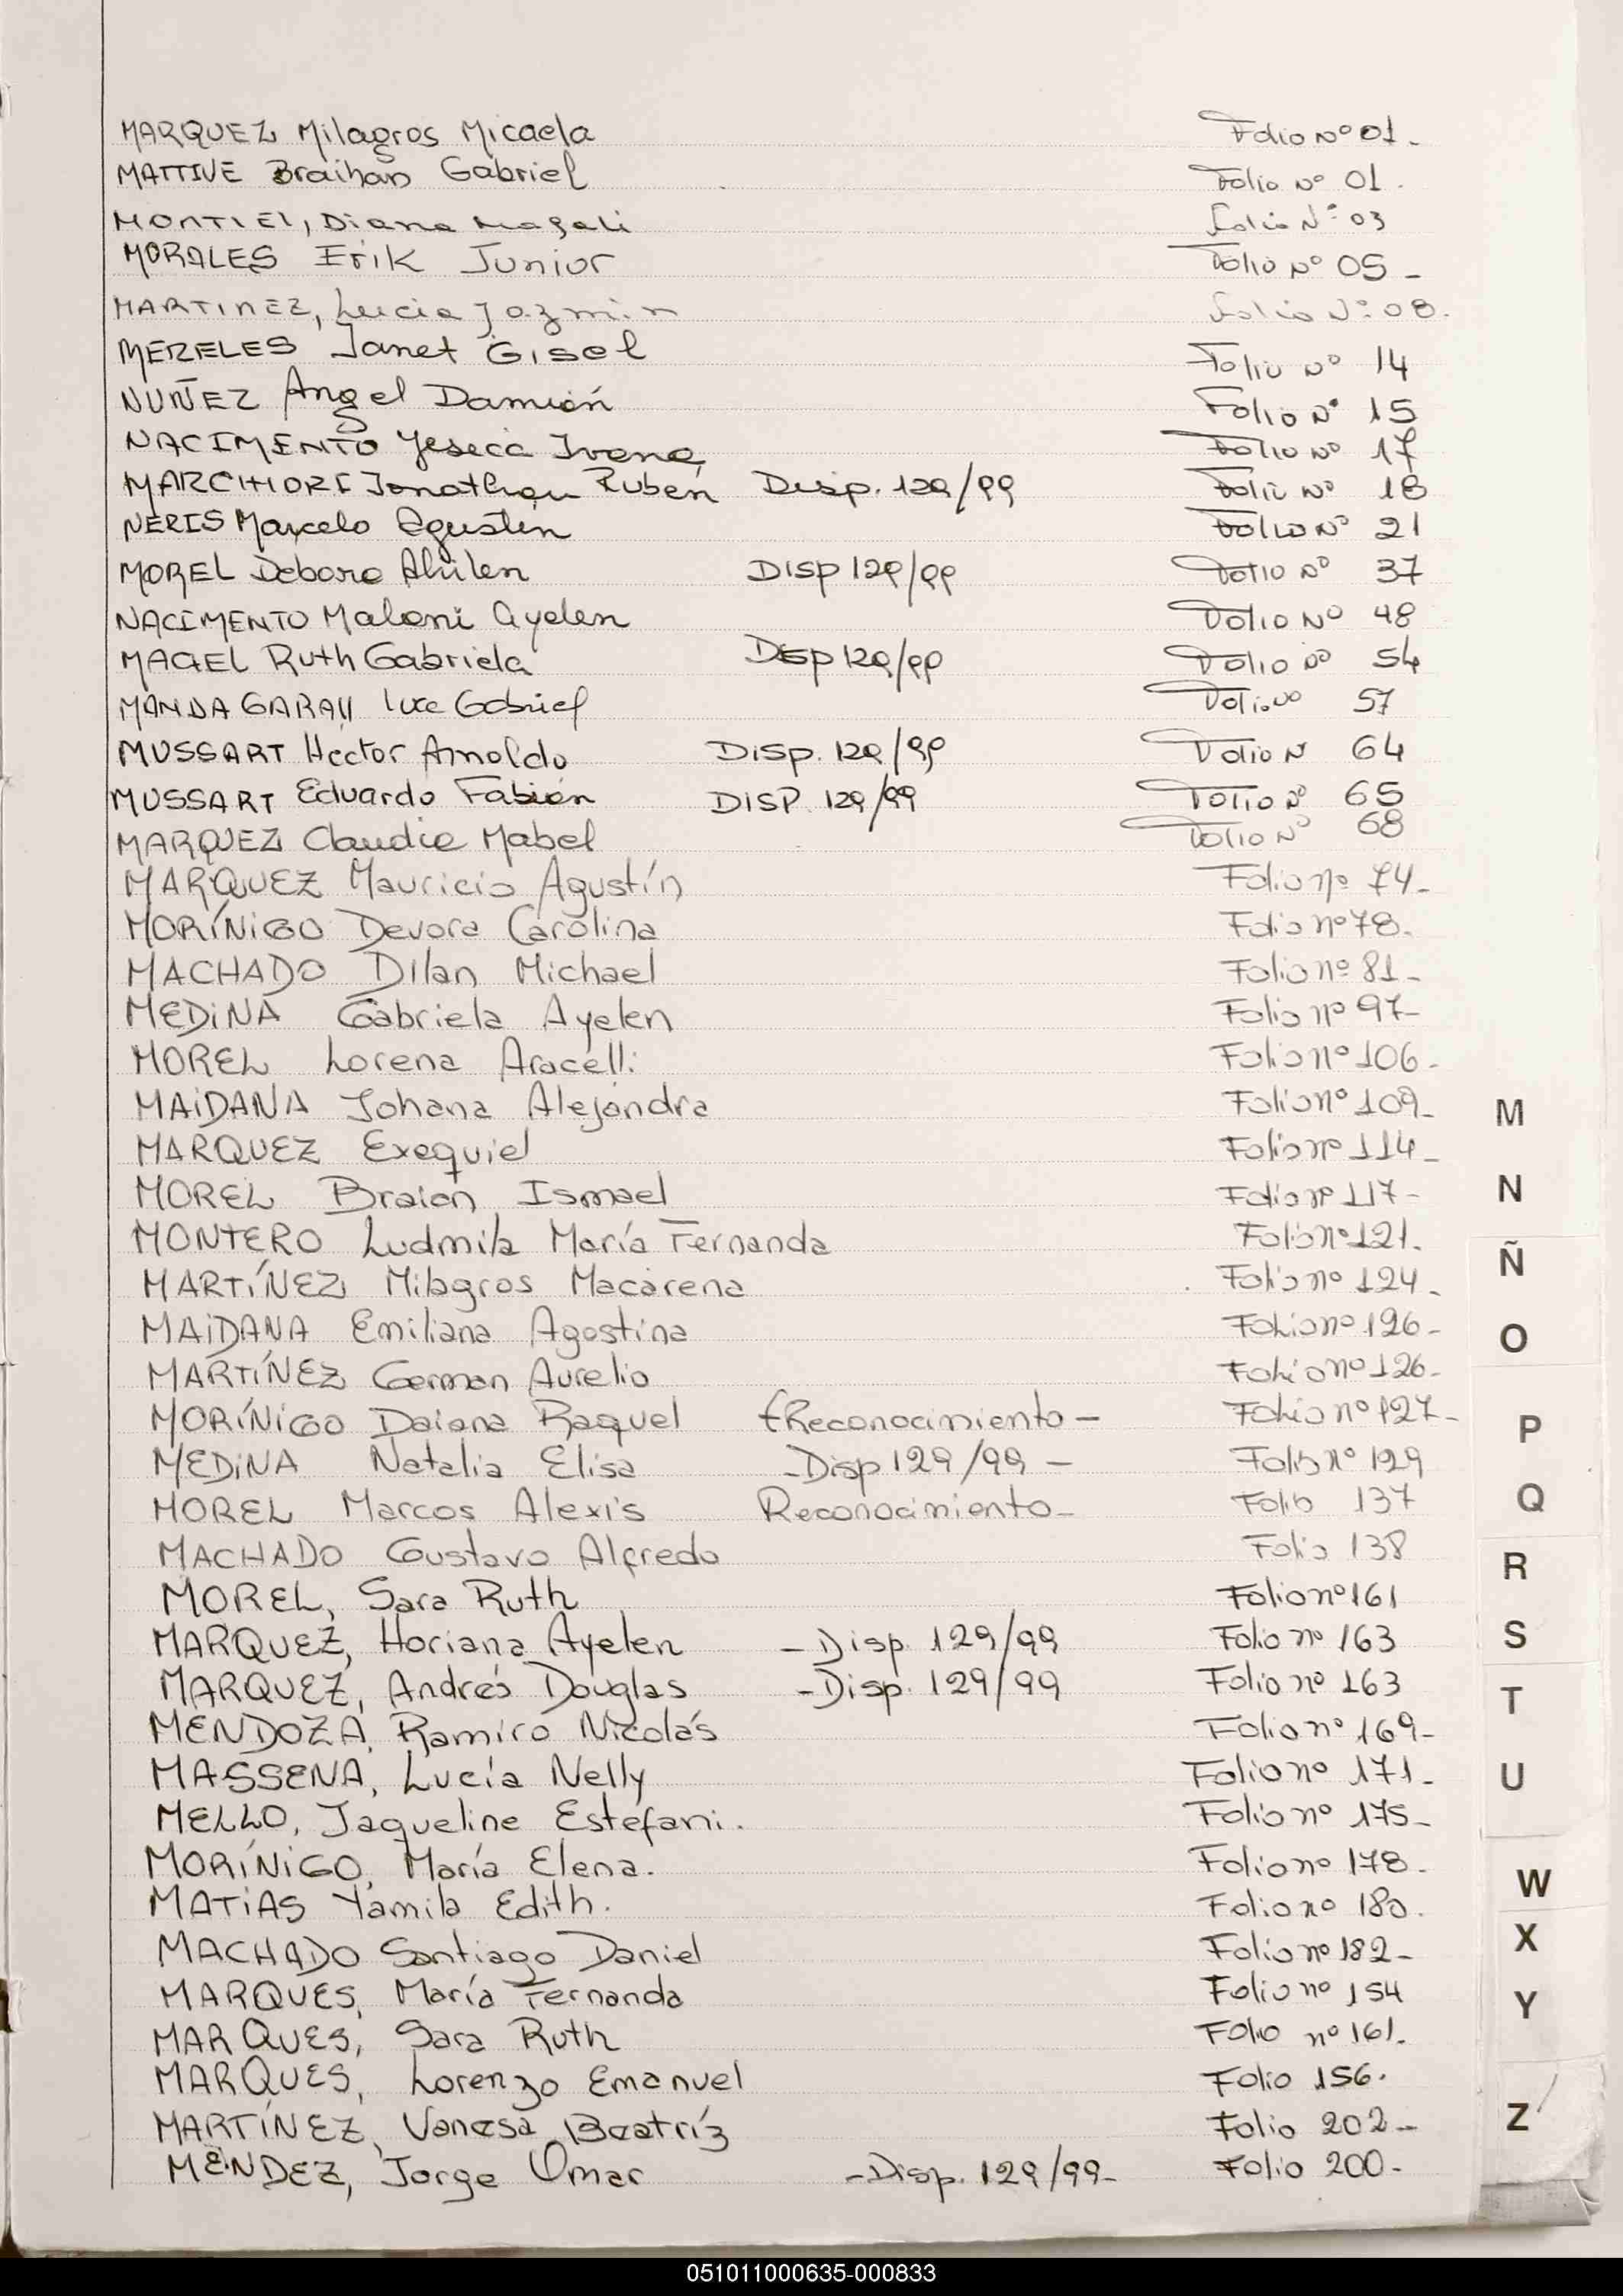 MARQUEZ Milagros Micaela Folio Nº 01.
MATTIVE Braihan Gabriel Folio Nº 01.
MONTIEL, Diana Magali Folio Nº 03
MORALES Erik Junior Folio Nº 05 -
MARTINEZ, Lucia Jazmin Folio Nº: 08.
MERELES Janet Gisel Folio Nº 14
NUÑEZ Angel Damián Folio Nº 15
NACIMENTO Yeseca Ivana Folio Nº 17
MARCHIORI Jonathan Ruben Disp. 129/99 Folio Nº 18
NERIS Marcelo Agustin Folio Nº 21
MOREL Debora Ahilen DISP 129/99 Folio Nº 37
NACIMENTO Maloni Ayelen Folio Nº 48
MAGEL Ruth Gabriela Disp 129/99 Folio Nº 54
MANDA GARAY Luca Gabriel Folio Nº 57
MUSSART Hector Arnoldo Disp. 129/99 Folio N 64
MUSSART Eduardo Fabián DISP. 129/99 Folio Nº 65
MARQUEZ Claudia Mabel Folio Nº 68
MARQUEZ Mauricio Agustín Folio nº 74-
MORÍNIGO Devora Carolina Folio nº 78.
MACHADO Dilan Michael Folio nº 81-
MEDINA Gabriela Ayelen Folio nº 97-
MOREL Lorena Aracelli Folio nº 106-
MAIDANA Johana Alejandra Folio nº 109-
MARQUEZ Exequiel Folio nº 114-
MOREL Braian Ismael Folio nº 117-
MONTERO Ludmila María Fernanda Folio nº 121.
MARTÍNEZ Milagros Macarena Folio nº 124-
MAIDANA Emiliana Agostina Folio nº 126-
MARTÍNEZ German Aurelio Folio nº 126-
MORÍNIGO Daiana Raquel Reconocimiento- Folio nº 127-
MEDINA Natalia Elisa -Disp 129/99 - Folio nº 129
MOREL Marcos Alexis Reconocimiento- Folio 137
MACHADO Gustavo Alfredo Folio 138
MOREL, Sara Ruth Folio nº 161
MARQUEZ, Horiana Ayelen -Disp. 129/99 Folio nº 163
MARQUEZ, Andrés Douglas -Disp. 129/99 Folio nº 163
MENDOZA, Ramiro Nicolás Folio nº 169-
MASSENA, Lucía Nelly Folio nº 171-
MELLO, Jaqueline Estefani. Folio nº 175-
MORÍNIGO, María Elena. Folio nº 178.
MATIAS Yamila Edith. Folio nº 180.
MACHADO Santiago Daniel Folio nº 182-
MARQUES, María Fernanda Folio nº 154
MARQUES, Sara Ruth Folio nº 161.
MARQUES, Lorenzo Emanuel Folio 156.
MARTÍNEZ, Vanesa Beatríz Folio 202-
MENDEZ, Jorge Omar -Disp. 129/99- Folio 200-
M
N
Ñ
O
P
Q
R
S
T
U
W
X
Y
Z
051011000635-000833